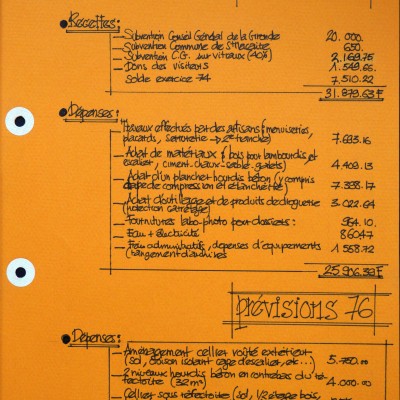 Recettes:
Subvention Conseil Général de la Gironde 20.000.
Subvention Commune de St Macaire 650.
Subvention C.G. sur vitraux (40%) 2.169.75
Dons des visiteurs 1.549.66
Solde exercice 74 7.510.22
31.879.63 F
Dépenses:
Travaux effectués par des artisans (menuiseries,
placards, serrurerie → 2e tranche) 7.683.16
Achat de matériaux (bois pour lambourdis et
escalier, ciment, chaux-sable, galets) 4.409.13
Achat d'un plancher hourdis béton (y compris
chape de compression et étanchéité) 7.338.17
Achat d'outillage et de produits de droguerie
(protection carrelage) 3.022.64
Fournitures labo-photo pour dossiers: 964.10.
Eau + électricité 860.47
Frais administratifs, dépenses d'équipements 1 558.72
(rangement d'archives
25 916.39 F
prévisions 76
Dépenses:
Aménagement cellier voûté extérieur
(sol, cloison isolant cage d'escalier, etc...) 5.750.00
2 niveaux hourdis béton en contrebas du ré-
fectoire (32 m²) 4.000.00
Cellier sous réfectoire (sol, 1/2 étage bois,